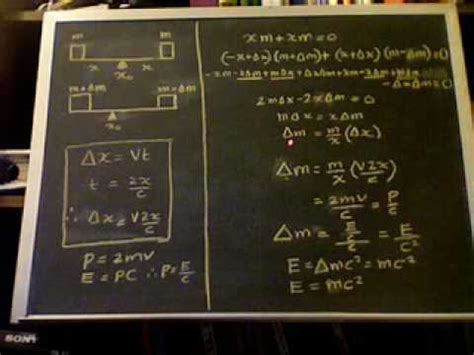 m m
x x
x₀
m+Δm m-Δm
x₀
Δx = Vt
t = 2x/c
∴ Δx = V2x/c
P = 2mV
E = PC ∴ P = E/c
xm + xm = 0
(-x+Δx)(m+Δm)+(x+Δx)(m-Δm)=0
2mΔx-2xΔm=0
mΔx = xΔm
Δm = m/x (Δx)
Δm = m/x (V2x/c)
= 2mV/c = P/c
Δm = E/c/c = E/c²
E = Δmc² = mc²
E = mc²
SONY